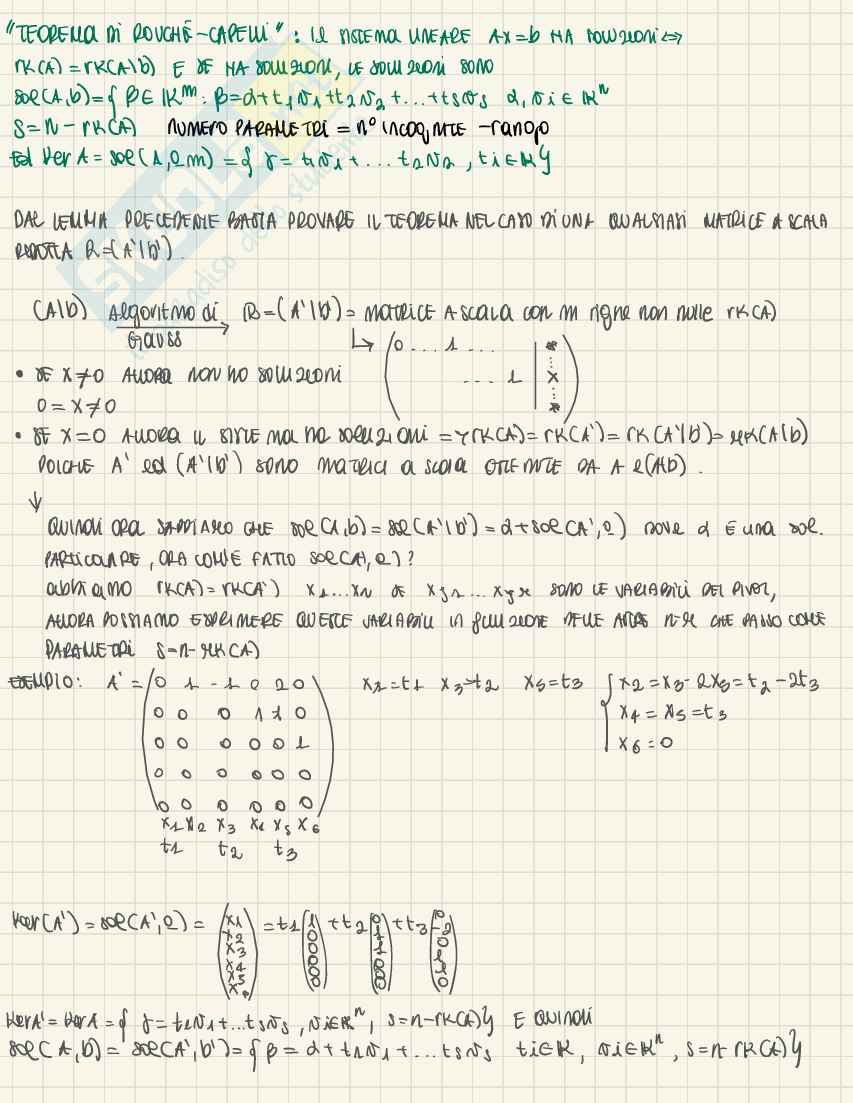 "TEOREMA DI ROUCHÉ-CAPELLI": IL SISTEMA LINEARE AX=b HA SOLUZIONI ⇔
rK(A)=rK(A|b) E SE HA SOLUZIONI, LE SOLUZIONI SONO
sol(A,b)={ β ∈ K^m : β=α+t1v1+t2v2+...+tsvs α,vi ∈ K^n
S=n-rK(A) NUMERO PARAMETRI = n° INCOGNITE -rango
Ed Ker A = sol(A,0m) = { γ = t1v1+...t2v2, ti∈K}
DAL LEMMA PRECEDENTE BASTA PROVARE IL TEOREMA NEL CASO DI UNA QUALSIASI MATRICE A SCALA
RIDOTTA R=(A'|b').
(A|b) Algoritmo di Gauss → R=(A'|b')= MATRICE A SCALA con m righe non nulle rK(A)
↳ (0 ... 1 ... | *
... 1 | X
| *)
• SE X≠0 ALLORA NON HO SOLUZIONI
0=X≠0
• SE X=0 ALLORA IL SISTEMA HA SOLUZIONI => rK(A)=rK(A')=rK(A'|b')=rK(A|b)
POICHE A' ed (A'|b') SONO MATRICI a scala OTTENUTE DA A e(A|b).
↓
QUINDI ORA SAPPIAMO CHE sol(A,b)=sol(A'|b')=α+sol(A',0) DOVE α È UNA SOL.
PARTICOLARE, ORA COM'È FATTO sol(A',0)?
abbiamo rK(A)=rK(A') X1...Xn SE Xj1...Xjr SONO LE VARIABILI DEI PIVOT,
ALLORA POSSIAMO ESPRIMERE QUESTE VARIABILI in funzione DELLE ALTRE n-r CHE PASSO COME
PARAMETRI S=n-rK(A)
ESEMPIO: A' = (0 1 -1 0 2 0) X1=t1 X3=t2 X5=t3 { X2=X3-2X5=t2-2t3
0 0 0 1 1 0 X4=X5=t3
0 0 0 0 0 1 X6=0
0 0 0 0 0 0
0 0 0 0 0 0
X1 X2 X3 X4 X5 X6
t1 t2 t3
Ker(A')=sol(A',0)= (X1 X2 X3 X4 X5 X6) =t1(1 0 0 0 0 0)+t2(0 1 1 0 0 0)+t3(0 -2 0 1 1 0)
Ker A'=Ker A={ γ=t1v1+...tsvs, vi∈K^n, S=n-rK(A)} E QUINDI
sol(A,b)= sol(A',b')={ β = α+t1v1+...tsvs ti∈K, vi∈K^n, S=n-rK(A)}